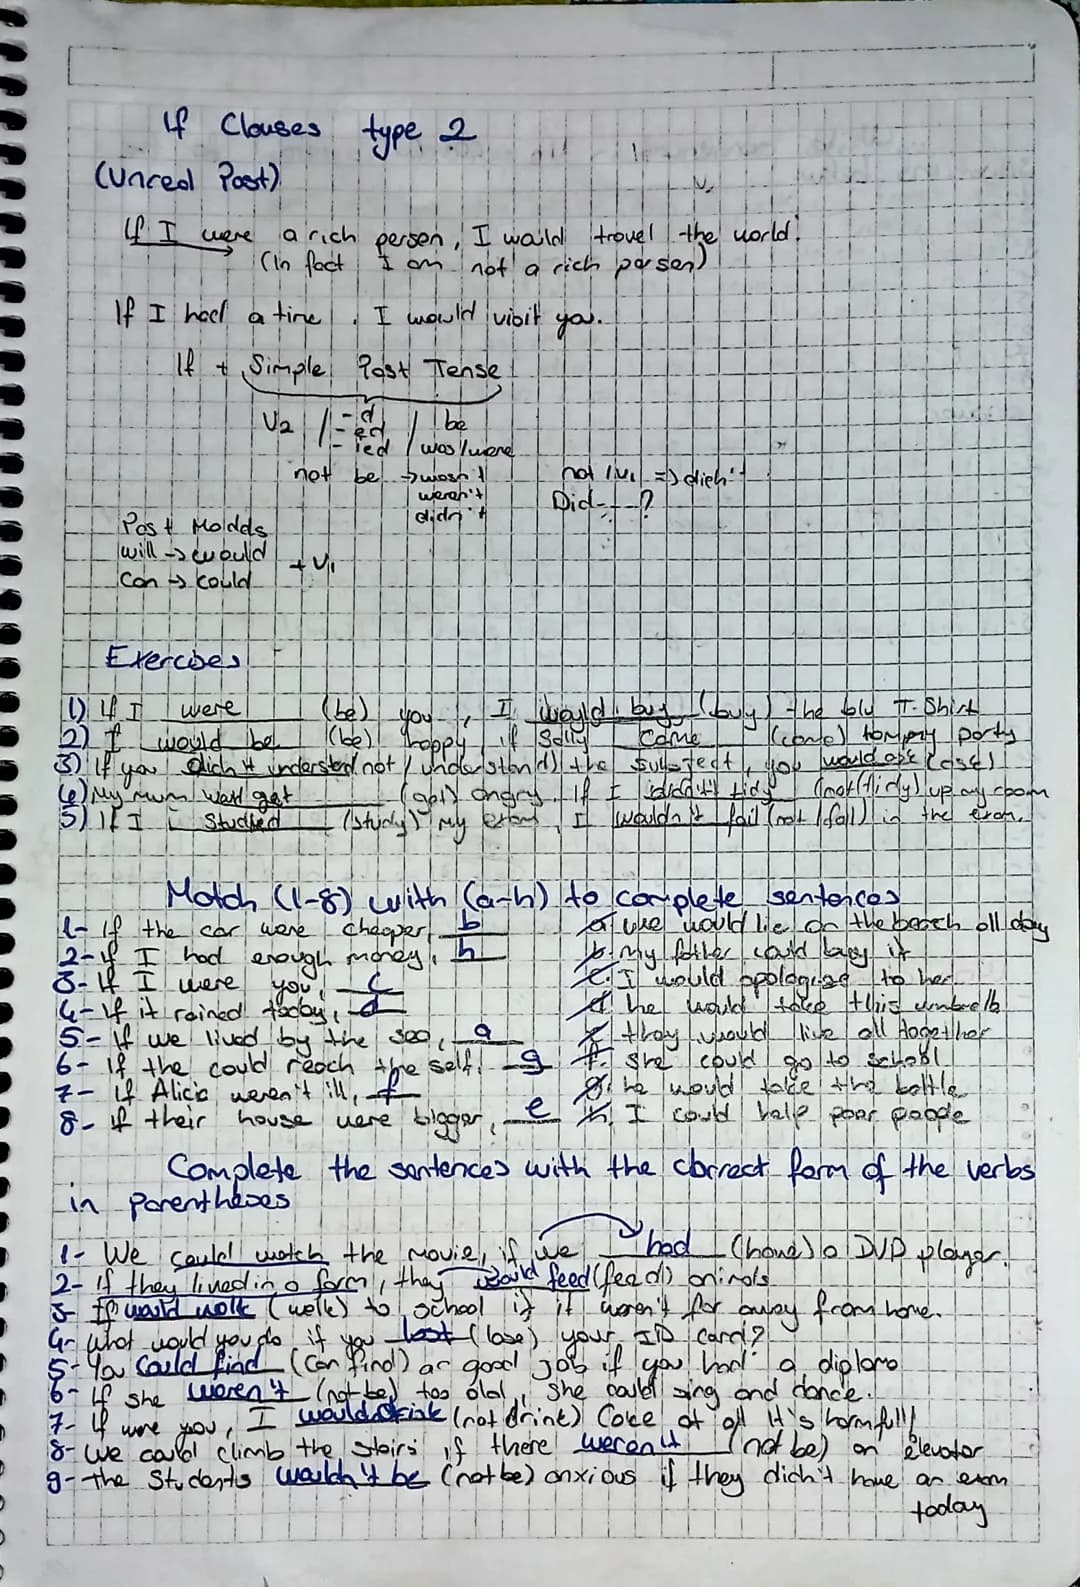 If Clauses type 2
(Unreal Past)
V₁
If I were a rich person, I would travel the world.
(In fact I am not a rich person)
If I had a time, I would visit you.
If + Simple Past Tense
V2 / -d / be
-ed
-ied / was/were
not be → wasn't not / V₁ => didn't
weren't Did----?
didn't
Past Modals
will → would + V₁
Can → Could
Exercises
1) If I were (be) you, I would buy (buy) the blu T-Shirt
2) I would be (be) happy, if Sally came (come) to my party
3) If you didn't understand (not / understand) the subject, you would ask (ask)
4) My mum get (get) angry, if I didn't tidy (not(tidy) up my room
5) If I studied (study) my exam, I wouldn't fail (not / fail) in the exam.
Match (1-8) with (a-h) to complete sentences
1- If the car were cheaper, b a. we would lie on the beach all day
2- If I had enough money, h b. my father could buy it
3- If I were you, c c. I would apologise to her
4- If it rained today, d d. he would take this umbrella
5- If we lived by the sea, a e. they would live all together
6- If the could reach the self, g f. she could go to school
7- If Alice weren't ill, f g. he would take the bottle
8- if their house were bigger, e h. I could help poor people
Complete the sentences with the correct form of the verbs
in parentheses
1- We could watch the movie, if we had (have) a DVD player.
2- if they lived in a farm, they would feed (feed) animals
3- If would walk (walk) to school if it weren't far away from home.
4- What would you do if you lost (lose) your ID card?
5- You Could find (can find) a good job if you had a diploma
6- If she weren't (not be) too old, she could sing and dance.
7- If were you, I (not drink) Coke at all It's harmfull!
8- We could climb the stairs if there weren't (not be) an elevator
9- The Students wouldn't be (not be) anxious if they didn't have an exam
today